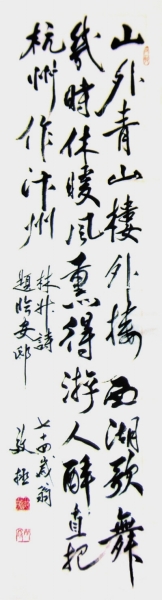 山外青山樓外楼西湖歌舞
幾時休暖風熏得游人醉直把
杭州作汴州
林升詩
題臨安邸
七十四歲翁